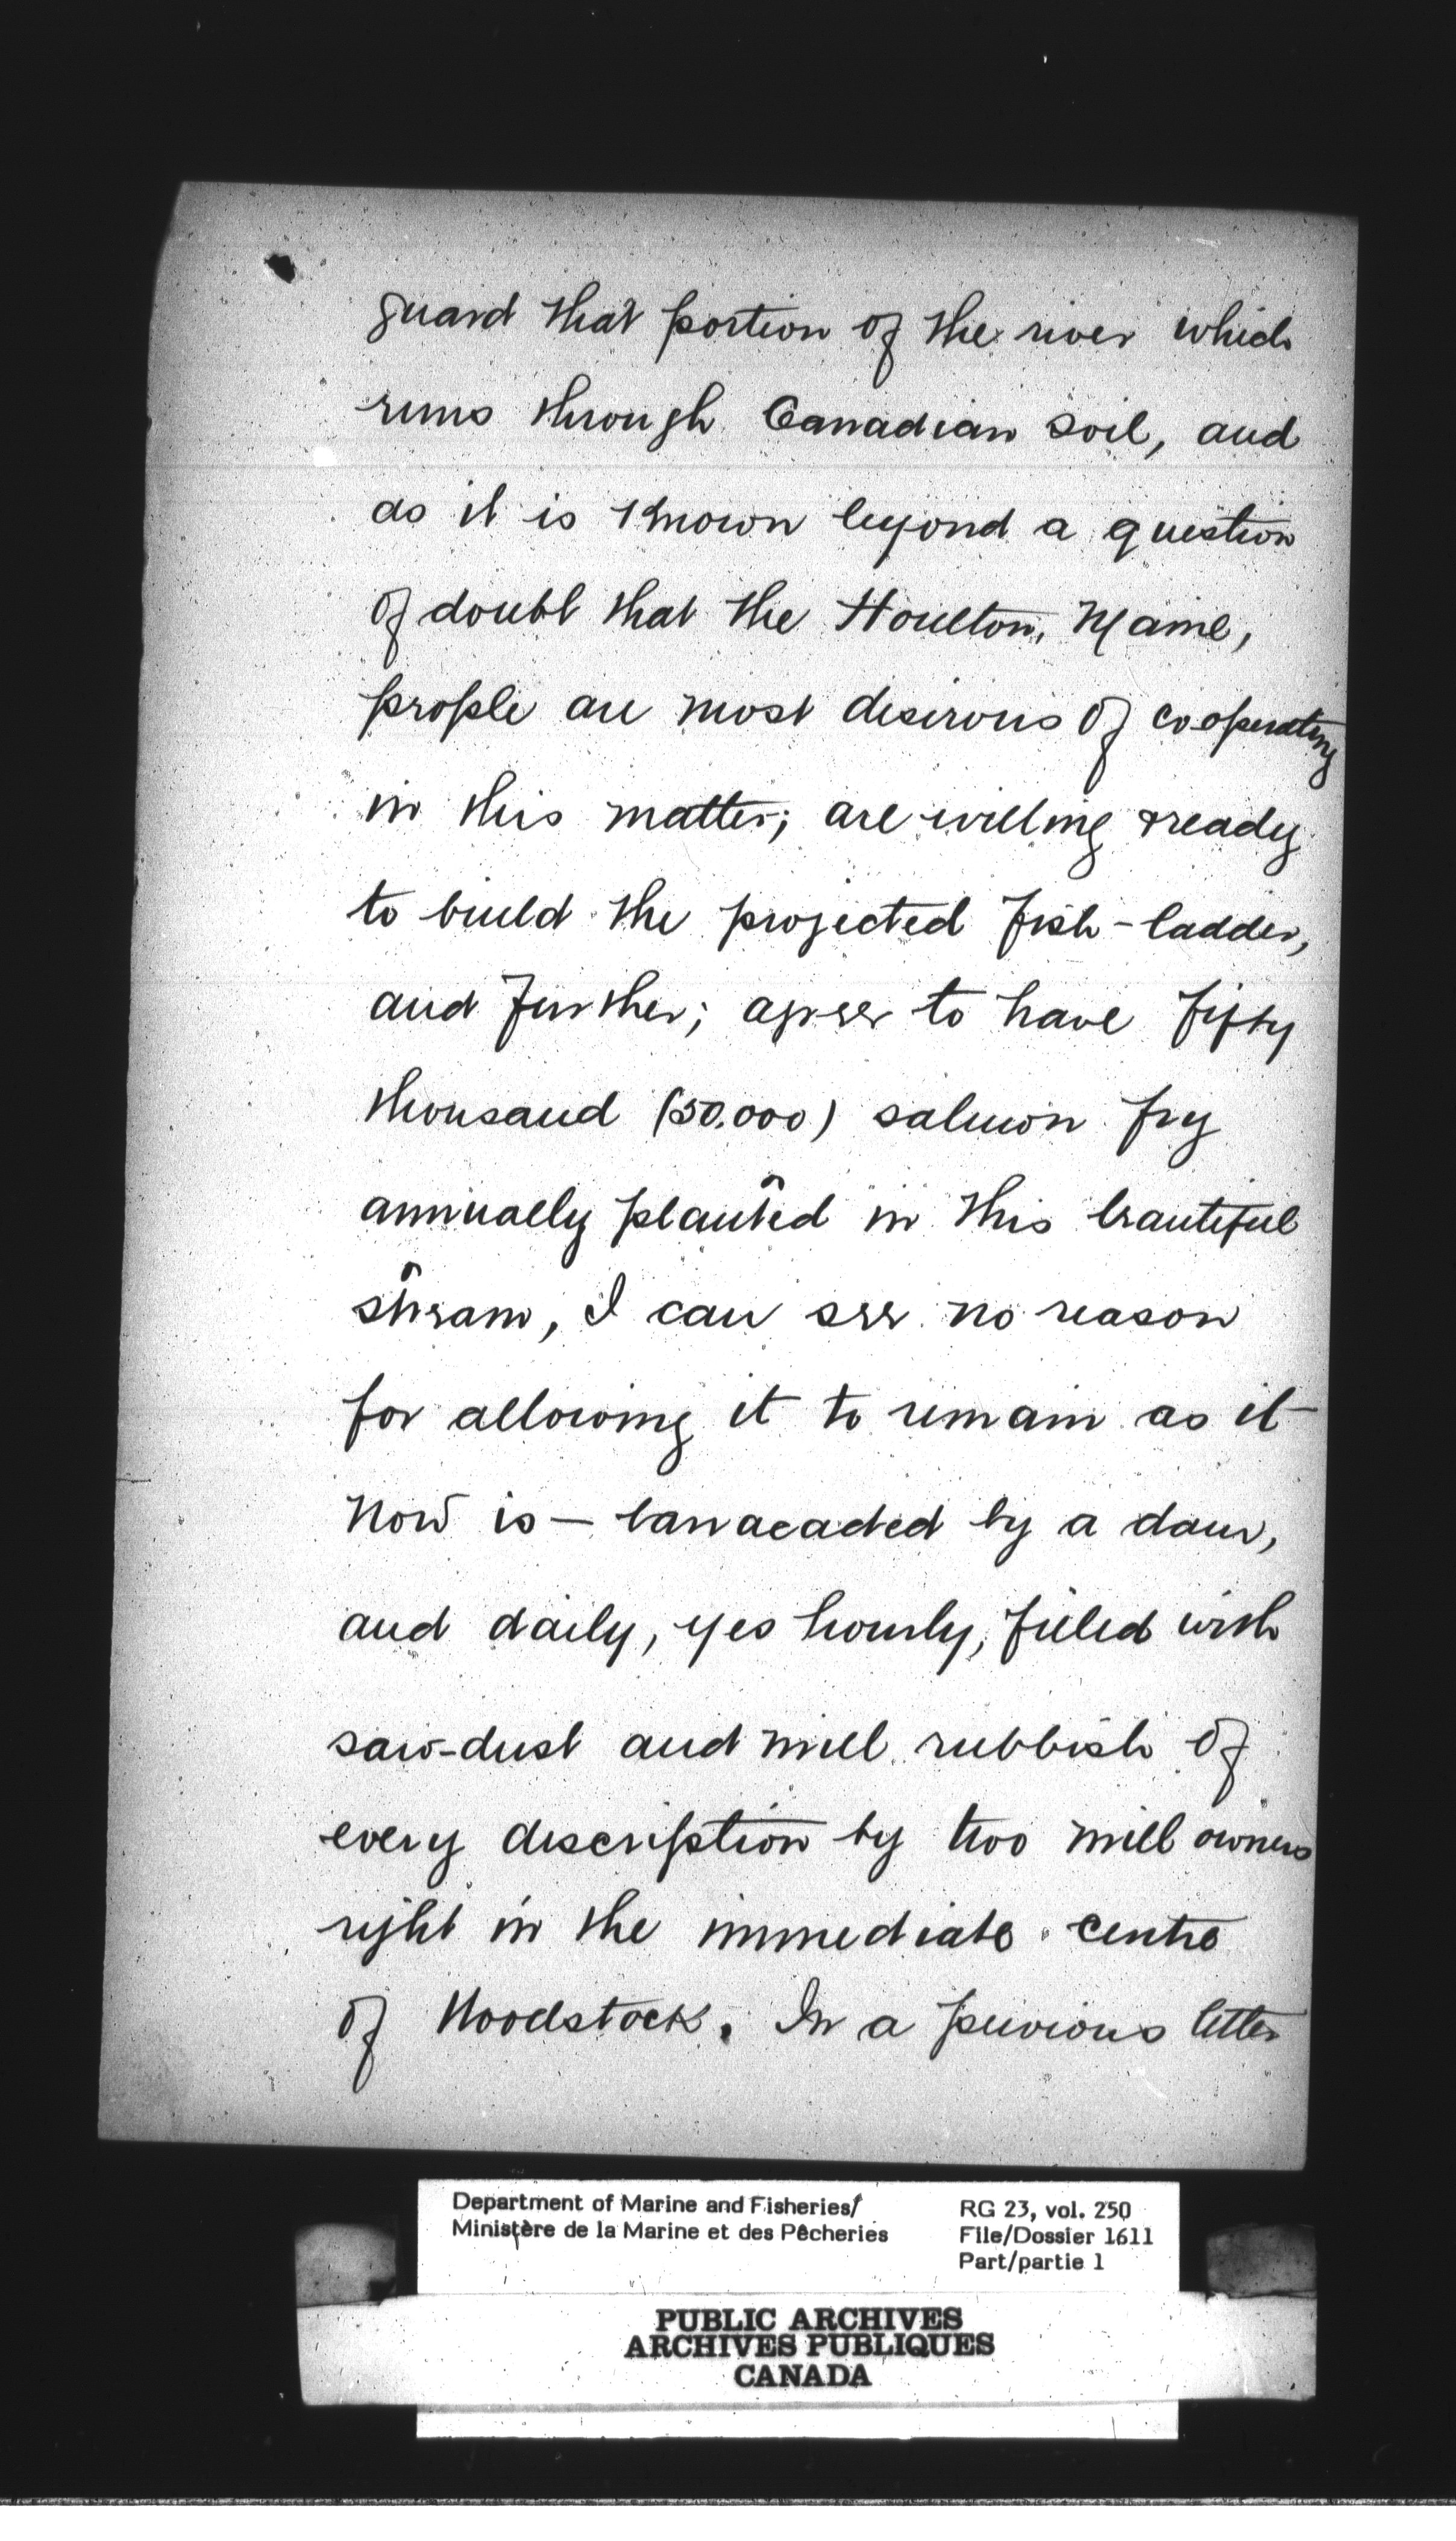 guard that portion of the river which
runs through Canadian soil, and
as it is known beyond a question
of doubt that the Houlton, Maine,
people are most desirous of co-operating
in this matter; are willing & ready
to build the projected fish-ladder,
and further; agree to have fifty
thousand (50.000) salmon fry
annually planted in this beautiful
stream, I can see no reason
for allowing it to remain as it
now is — barracaded by a dam,
and daily, yes hourly, filled with
saw-dust and mill rubbish of
every description by two mill owners
right in the immediate centre
of Woodstock. In a previous letter
Department of Marine and Fisheries/
Ministère de la Marine et des Pêcheries
RG 23, vol. 250
File/Dossier 1611
Part/partie 1
PUBLIC ARCHIVES
ARCHIVES PUBLIQUES
CANADA